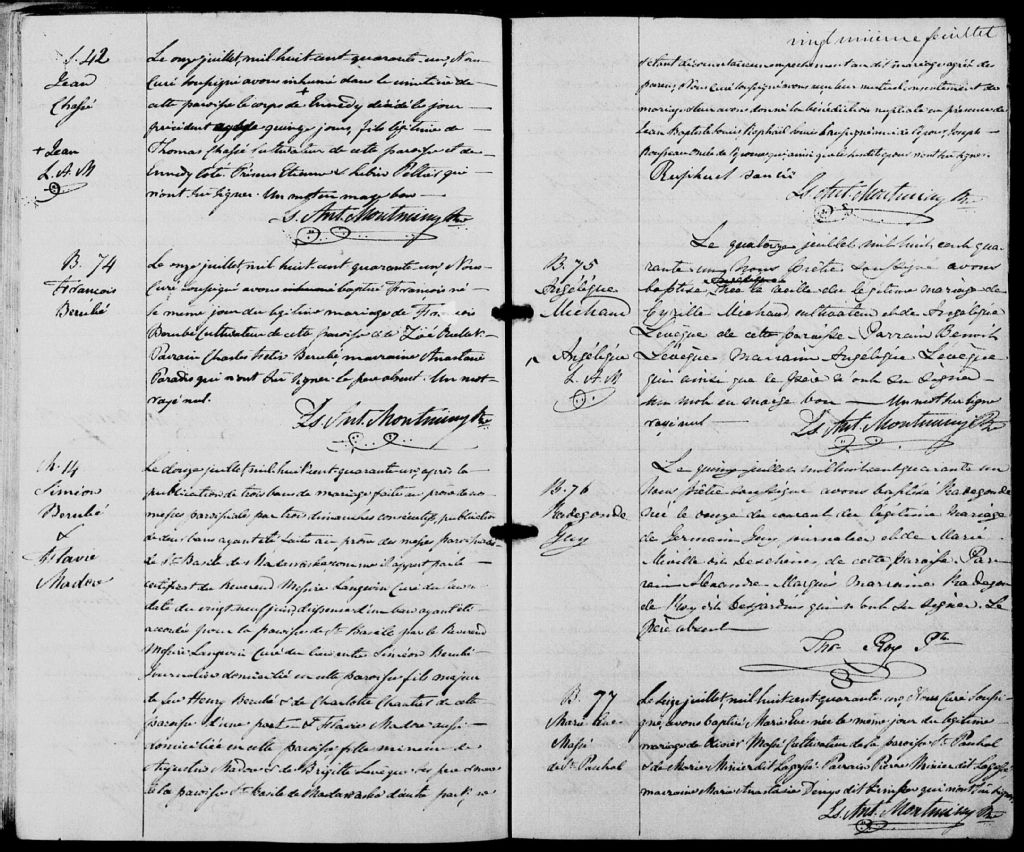 S. 42
Jean
Chassé
+ Jean
L. A. M
Le onze juillet, mil huit cent quarante-un, Nous
Curé soussigné avons inhumé dans le cimetière de
cette paroisse le corps de + décédé le jour
précédent quinze jours, fils légitime de
Thomas Chassé Cultivateur de cette paroisse et de
Côté Présens Etienne & Pelletier qui
n'ont su signer. Un mot en marge bon
Ls. Ant. Montminy Ptre
B. 74
François
Berubé
Le onze juillet, mil huit cent quarante-un Nous
Curé soussigné avons inhumé baptisé François né
le même jour du légitime mariage de François
Berubé Cultivateur de cette paroisse & de Zoé
Parrain Charles Berubé, marraine Anastasie
Paradis qui n'ont su signer le père absent. Un mot
rayé nul.
Ls. Ant. Montminy Ptre
M. 14
Siméon
Berubé
&
Flavie
Nadeau
Le douze juillet, mil huit cent quarante-un, après la
publication de trois bans de mariage faite au prône de nos
messes paroissiales par trois dimanches consécutifs, publication
de deux bans ayant été faite au prône des messes paroissiales
de St. Basile de Madawaska comme il appert par le
certificat du Révérend Messire Langevin Curé du lieu en
date du vingt neuf juin, dispense d'un ban ayant été
accordée pour la paroisse de St. Basile par le Révérend
Messire Langevin Curé du lieu entre Siméon Berubé
Journalier domicilié en cette paroisse fils majeur
de feu Henry Berubé & de Charlotte Charles de cette
paroisse d'une part - & Flavie aussi
domiciliée en cette paroisse fille mineure de
& de Brigitte Levèque ses père & mère
de la paroisse St. Basile de Madawaska d'autre part, ne
feuillet
s'étant découvert aucun empêchement au dit mariage agréé des
parens, Nous Curé soussigné avons reçu leur mutuel consentement de
mariage & leur avons donné la bénédiction nuptiale en présence de
Jean Baptiste Raphael de l'époux, Joseph
de l'épouse, qui ainsi que les dits époux n'ont su signer.
Raphael
Ls. Ant. Montminy Ptre
B. 75
Angélique
Michaud
Angélique
L. A. M
Le quatorze juillet mil huit cent qua-
rante un, Nous prêtre soussigné avons
baptisé née la veille du légitime mariage de
Cyrille Michaud cultivateur et de Angélique
Levèque de cette paroisse. Parrain Benoit
Levèque Marraine Angélique Levèque
qui ainsi que le père n'ont su signer
Un mot en marge bon — Un mot sur ligne
rayé nul
Ls Ant. Montminy Ptre
B. 76
Radegonde
Guy
Le quinze juillet mil huit cent quarante un
Nous prêtre soussigné avons baptisé Radegonde
née le onze du courant du légitime mariage
de Germain Guy journalier et de Marie
Miville dit Deschenes de cette paroisse. Par-
rain Alexandre Marquis Marraine Radegon-
de Roy dit Desjardins qui n'ont su signer. Le
père absent
Ths Roy Ptr
B. 77
Marie
Massé
dit St. Pachal
Le seize juillet, mil huit cent quarante-un, Nous Curé soussi-
gné, avons baptisé Marie née le même jour du légitime
mariage de Olivier Massé Cultivateur de la paroisse St. Pachal
& de Marie Minier dit Lagassé. Parrain Pierre Minier dit Lagassé
marraine Marie Anastasie qui n'ont su signer,
Ls. Ant. Montminy Ptre